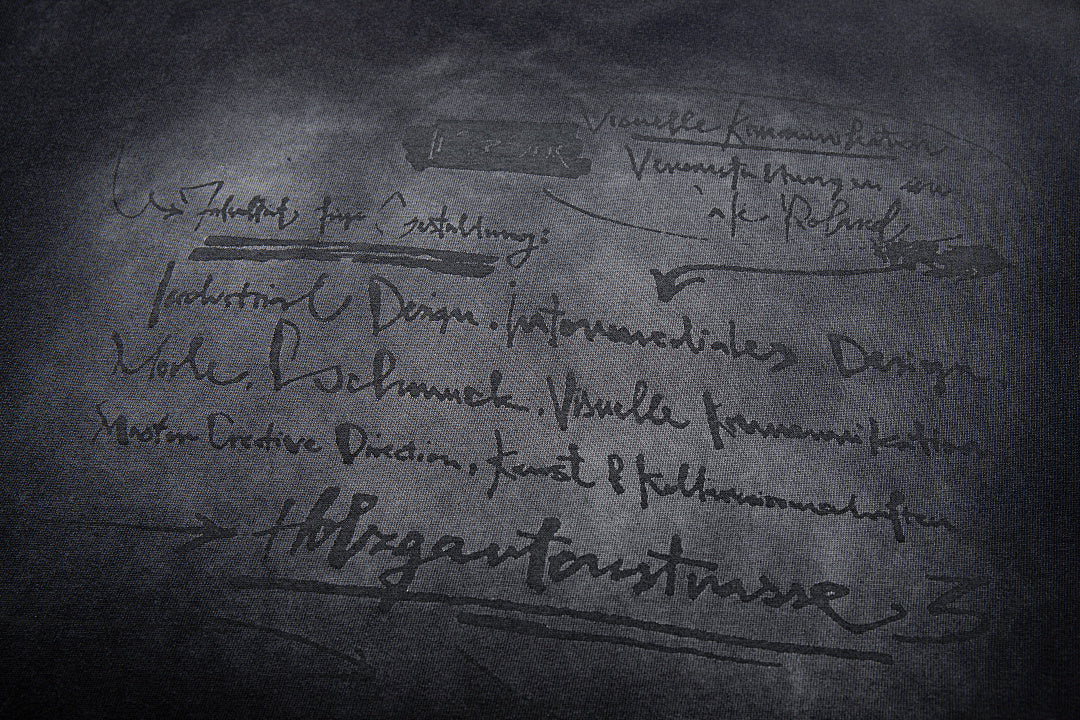 Visuelle Kommunikation
Veranstaltungen
Roland
Fakultät für Gestaltung:
Industrial Design. Intermediales Design.
Mode. Schmuck. Visuelle Kommunikation
Master Creative Direction, Kunst & Kulturwissenschaften
Holzgartenstrasse, 3